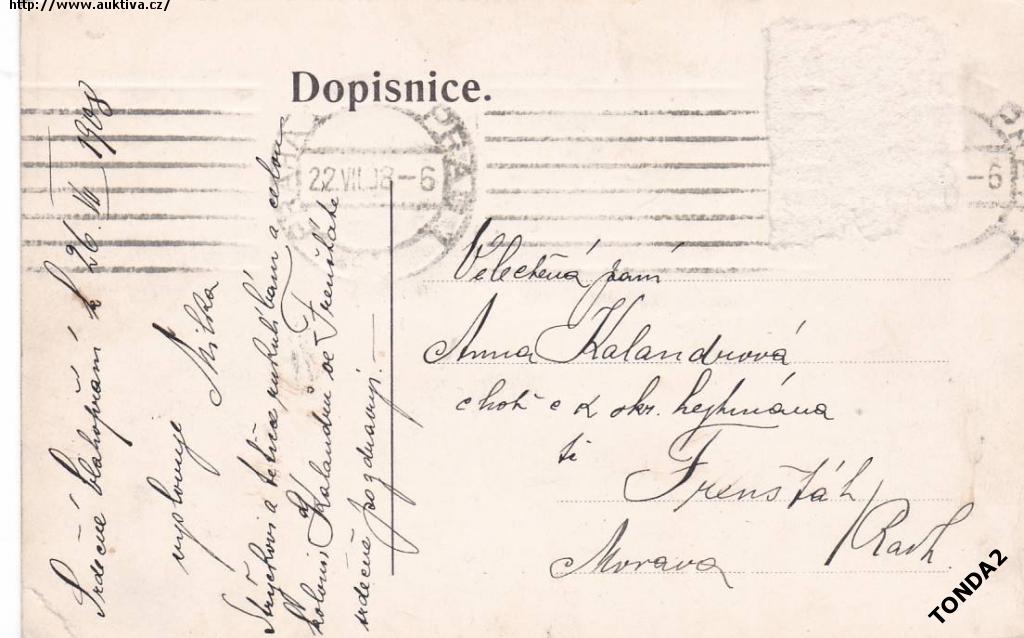 http://www.auktiva.cz/
Dopisnice.
PRAHA
22.VII.08-6
-6
Srdečné blahopřání k 26. VII 1908
vyslovuje Milka
Strýčkovi a tetičce rukulíbám a celou
kolonii Kalandrů ve Frenštátě
srdečně pozdravuji.
Velectěná paní
Anna Kalandrová
choť c k okr. hejtmána
Frenštát
/Radh.
Morava
TONDA2